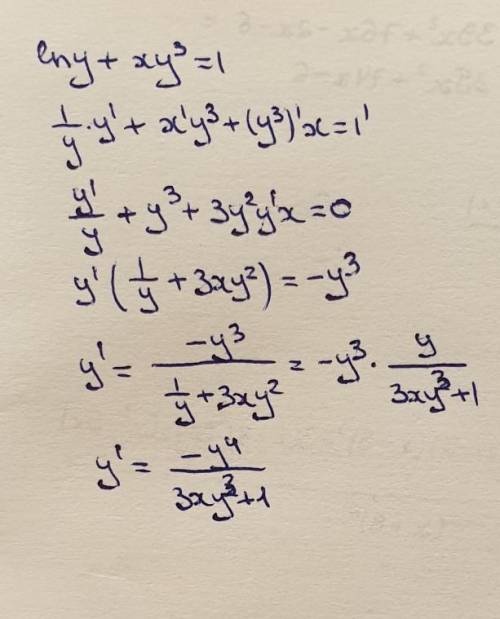 ln y + xy³ = 1
1/y · y' + x'y³ + (y³)'x = 1'
y'/y + y³ + 3y²y'x = 0
y' (1/y + 3xy²) = -y³
y' = -y³/(1/y + 3xy²) = -y³ · y/(3xy³+1)
y' = -y⁴/(3xy³+1)